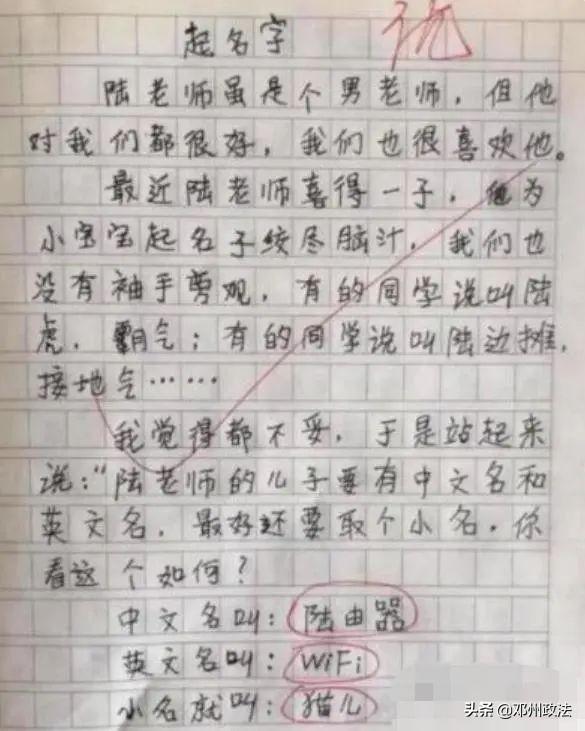 起名字
优
陆老师虽是个男老师，但他
对我们都很好，我们也很喜欢他。
最近陆老师喜得一子，他为
小宝宝起名子绞尽脑汁，我们也
没有袖手剪观，有的同学说叫陆
虎，霸气；有的同学说叫陆边摊，
接地气……
我觉得都不妥，于是站起来
说："陆老师的儿子要有中文名和
英文名，最好还要取个小名，你
看这个如何？
中文名叫：陆由器
英文名叫：WiFi
小名就叫：猫儿
头条@邓州政法